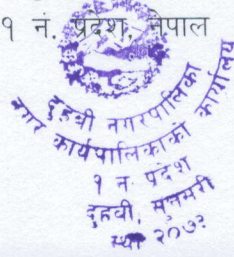 १ नं. प्रदेश, नेपाल
दुहवी नगरपालिका
नगर कार्यपालिकाको कार्यालय
१ नं प्रदेश
दुहवी, सुनसरी
स्था २०७३